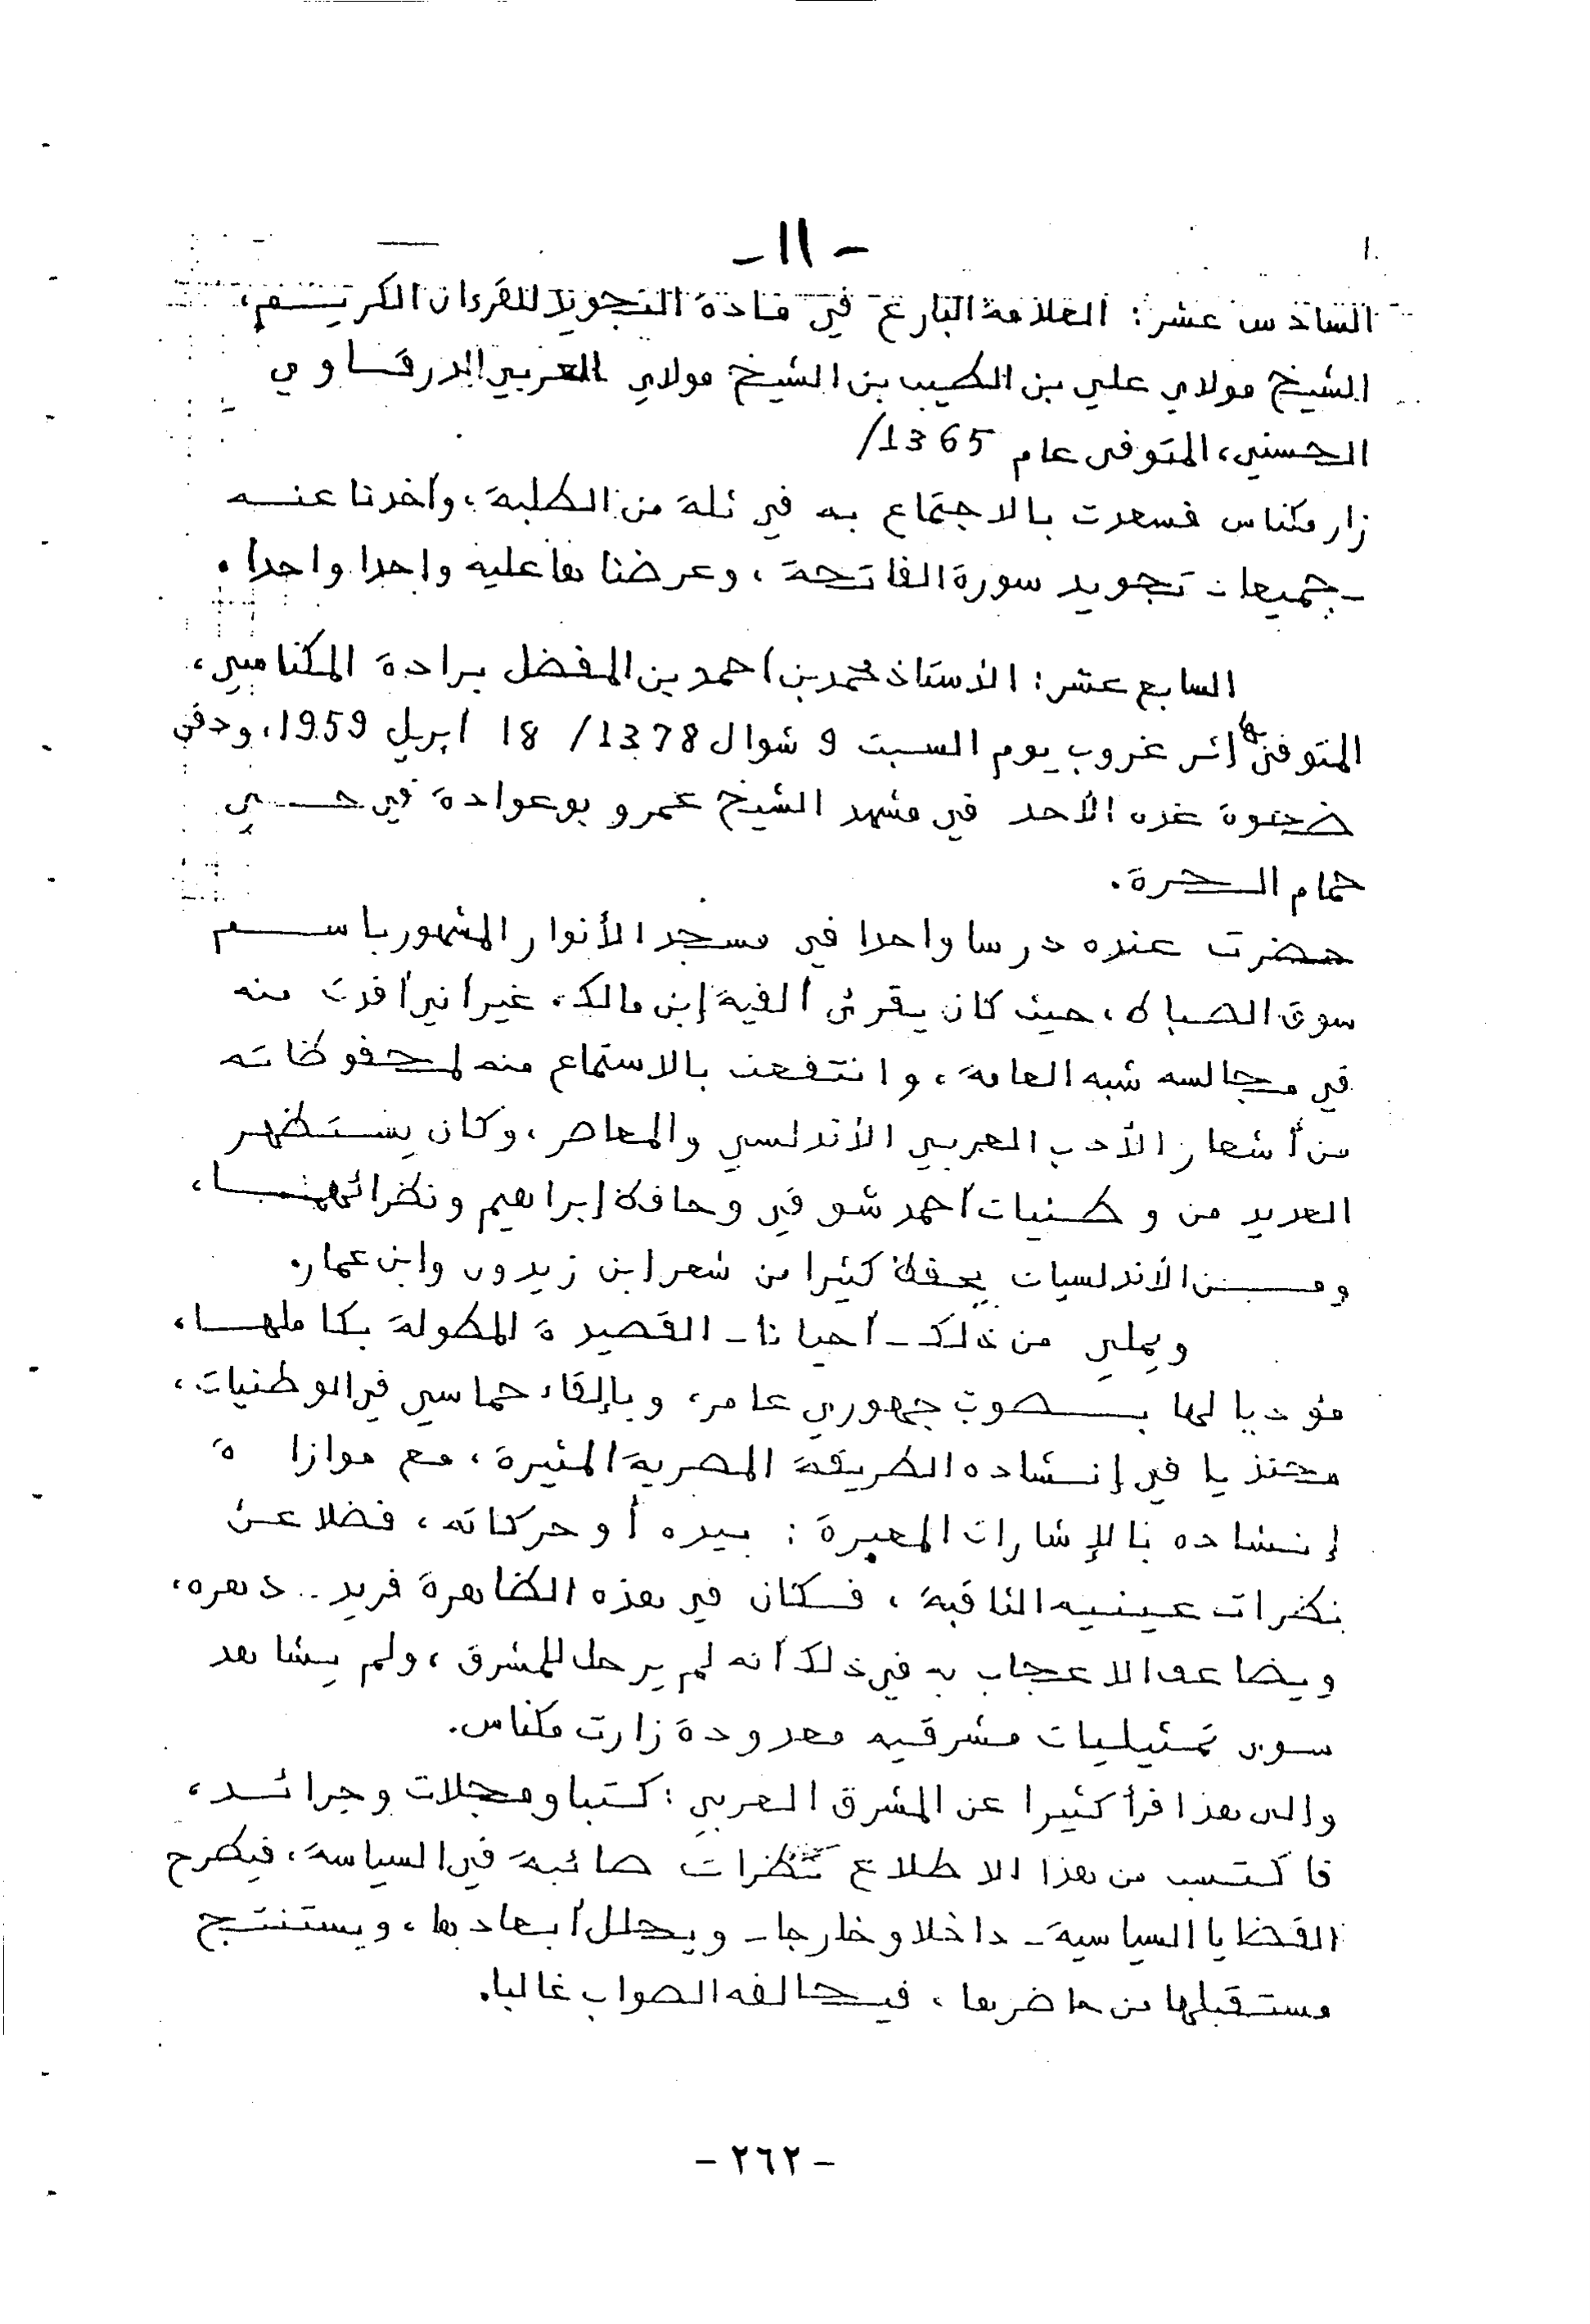 - ١١ -
السادس عشر: العلامة البارع في مادة التجويد للقرءان الكريم،
الشيخ مولاي علي بن الطيب بن الشيخ مولاي العربي الدرقاوي
الحسني، المتوفى عام 1365/
زار مكناس فسعدت بالاجتماع به في ثلة من الطلبة، وأخذنا عنه
- جميعا - تجويد سورة الفاتحة، وعرضناها عليه واحدا واحدا.
السابع عشر: الأستاذ محمد بن احمد بن المفضل برادة المكناسي،
المتوفى بها إثر غروب يوم السبت 9 شوال 1378/ 18 ابريل 1959، ودفن
ضحوة غده الأحد في مشهد الشيخ عمرو بوعوادة في حي
حمام الحرة.
حضرت عنده درسا واحدا في مسجد الأنوار المشهور باسم
سوق الصباط، حيث كان يقرئ ألفية إبن مالك. غير أني أفدت منه
في مجالسه شبه العامة، وانتفعت بالاستماع منه لمحفوظاته
من أشعار الأدب العربي الأندلسي والمعاصر، وكان يستظهر
العديد من وطنيات أحمد شوقي وحافظ إبراهيم ونظرائهما،
ومن الأندلسيات يحفظ كثيرا من شعر ابن زيدون وابن عمار.
ويملي من ذلك - أحيانا - القصيدة المطولة بكاملها،
مؤديا لها بصوت جهوري عامر، وبإلقاء حماسي في الوطنيات،
محتذيا في إنشاده الطريقة المصرية المثيرة، مع موازاة
إنشاده بالإشارات المعبرة: بيده أو حركاته، فضلا عن
نظرات عينيه الثاقبة، فكان في هذه الظاهرة فريد.. دهره،
ويضاعف الاعجاب به في ذلك أنه لم يرحل للمشرق، ولم يشاهد
سوى تمثيليات مشرقيه معدودة زارت مكناس.
والى هذا قرأ كثيرا عن المشرق العربي: كتبا ومجلات وجرائد،
فاكتسب من هذا الاطلاع نظرات صائبة في السياسة، فيطرح
القضايا السياسية - داخلا وخارجا - ويحلل أبعادها، ويستنتج
مستقبلها من حاضرها، فيحالفه الصواب غالبا.
- ٢٦٢ -